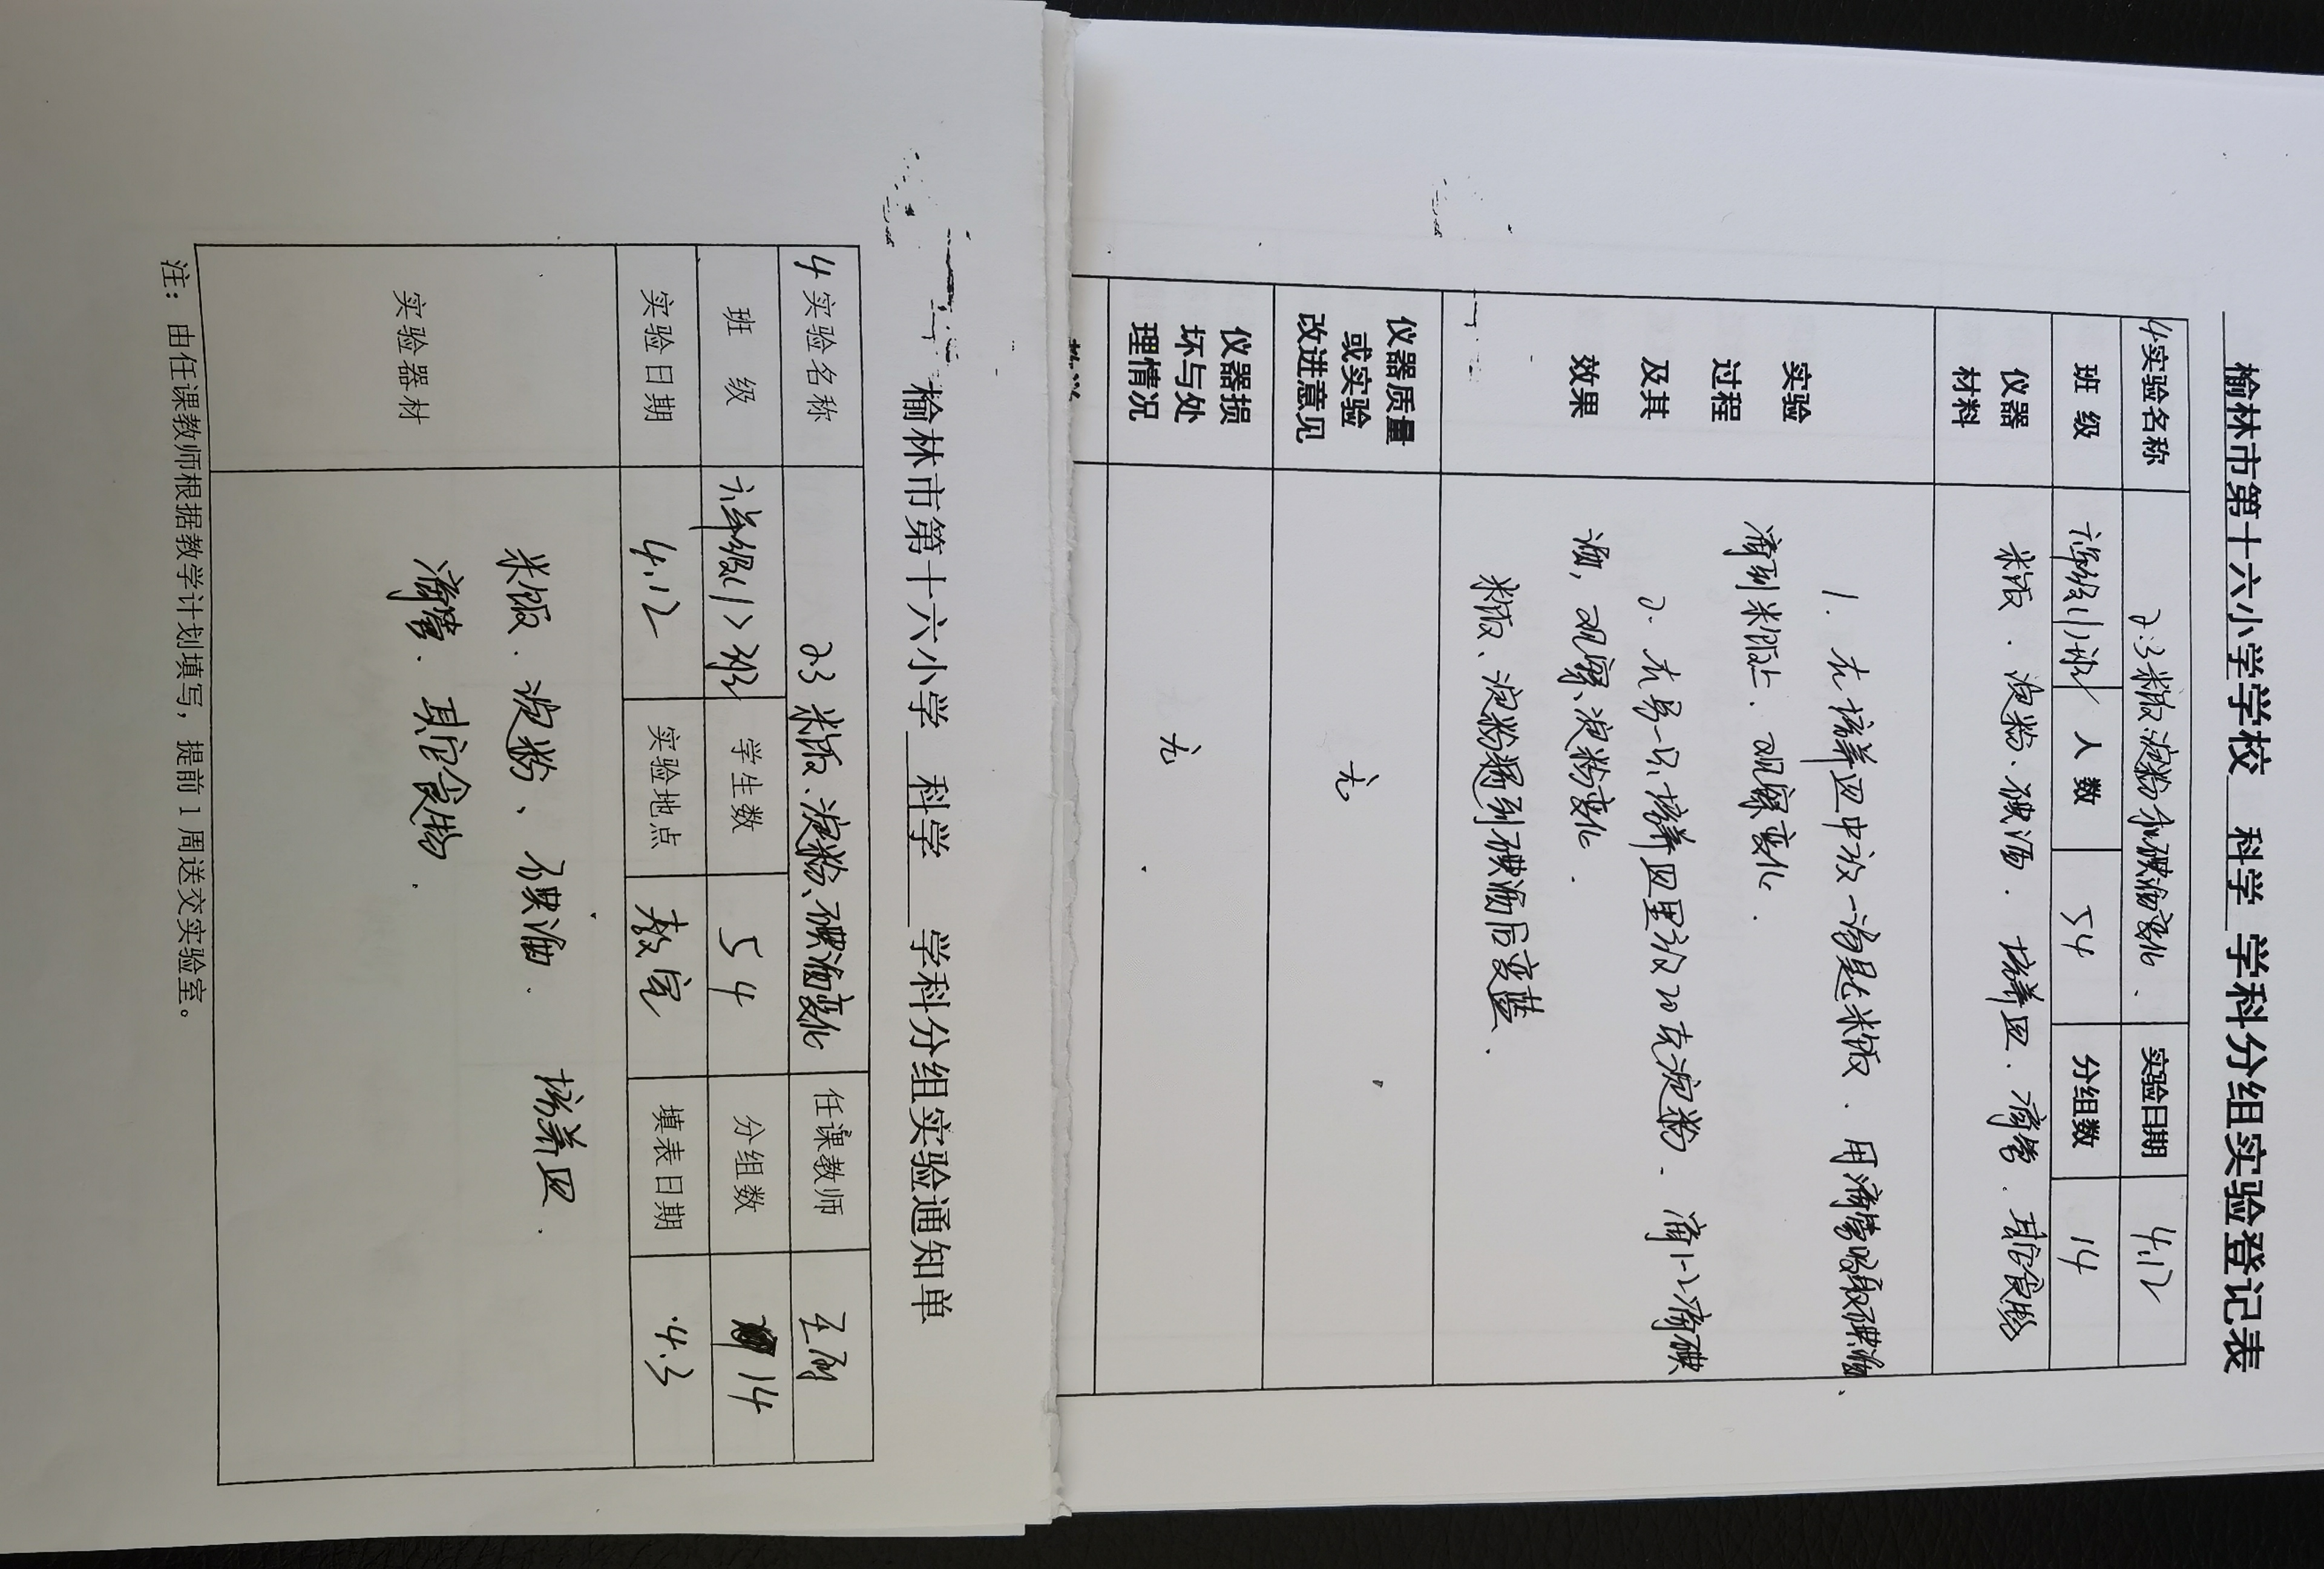 榆林市第十六小学学校 科学 学科分组实验登记表
4 实验名称 2.3米饭、淀粉和碘酒变化. 实验日期 4.12
班 级 六年级(1)班 人 数 54 分组数 14
仪器材料 米饭. 淀粉、碘酒. 培养皿. 滴管. 其它食物
实验过程及其效果
1. 在培养皿中放一海是米饭. 用滴管吸取碘酒
滴到米饭上. 观察变化.
2. 在另一只培养皿里放20克淀粉. 滴1-2滴碘
酒, 观察、淀粉变化.
米饭、淀粉遇到碘酒后变蓝.
仪器质量或实验改进意见 无
仪器损坏与处理情况 无
榆林市第十六小学 科学 学科分组实验通知单
4 实验名称 2.3 米饭、淀粉、碘酒变化 任课教师
班 级 六年级(1)班 学生数 54 分组数 14
实验日期 4.12 实验地点 教室 填表日期 4.3
实验器材
米饭. 淀粉、碘酒. 培养皿.
滴管. 其它食物.
注：由任课教师根据教学计划填写，提前1周送交实验室。